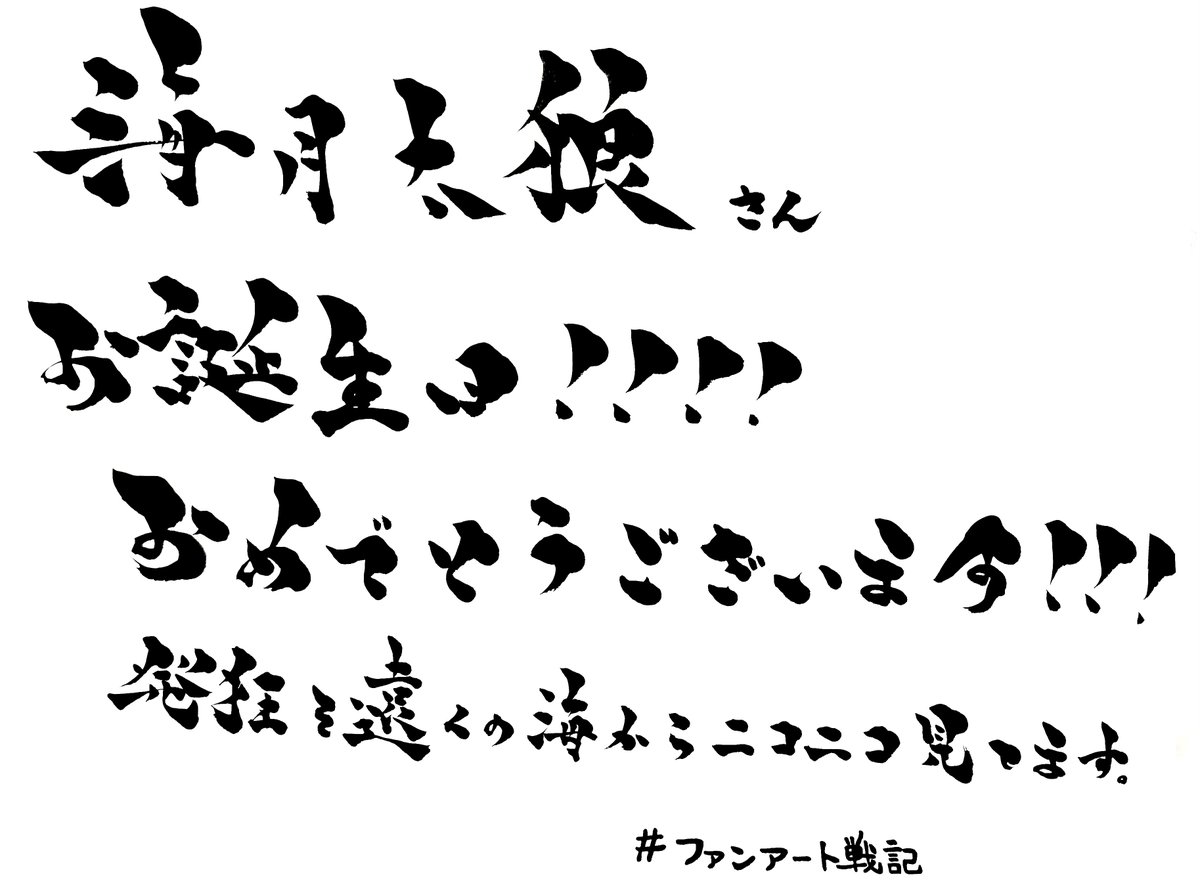 海月志狼さん
お誕生日!!!!
おめでとうございます!!!
発狂を遠くの海からニコニコ見てます。
#ファンアート戦記